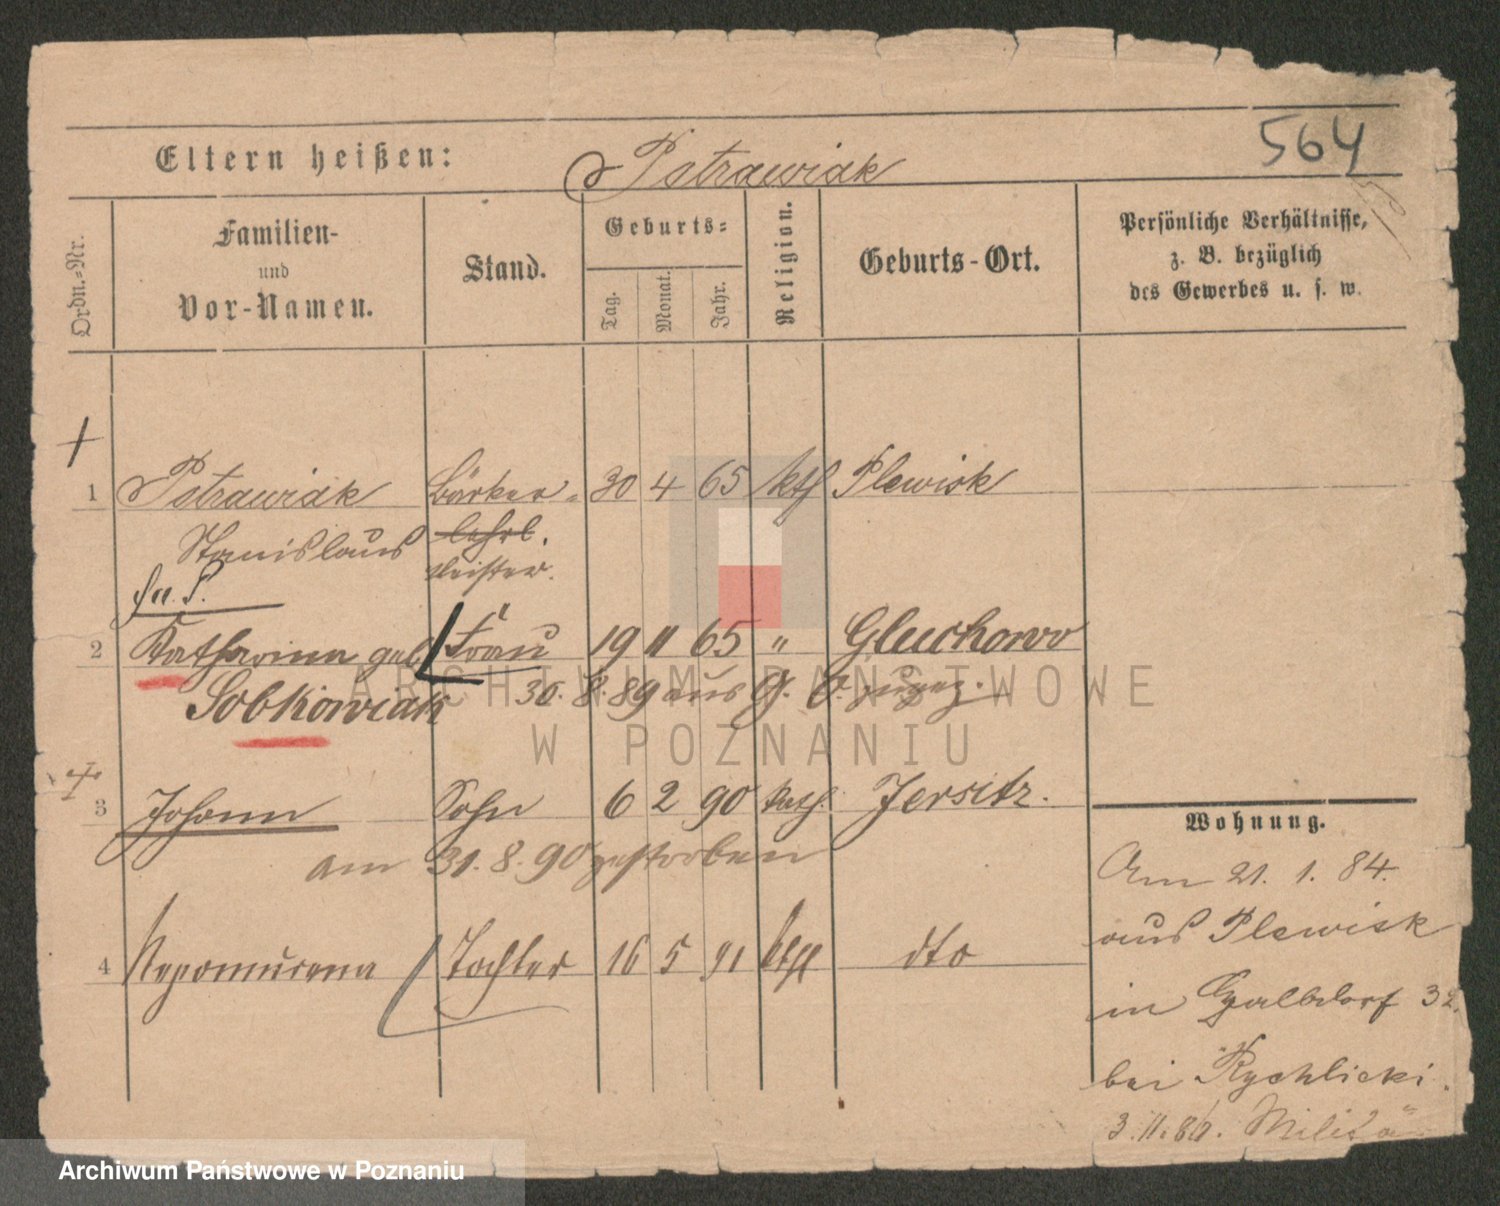 564
Eltern heißen: Pstrawiak
Ordn.=Nr.
Familien-
und
Vor-Namen.
Stand.
Geburts=
Tag.
Monat.
Jahr.
Religion.
Geburts-Ort.
Persönliche Verhältnisse,
z. B. bezüglich
des Gewerbes u. s. w.
1 Pstrawiak Bäcker= 30 4 65 kth Plewisk
Stanislaus lehrl.
meister.
2 Katharina geb. Frau 19 11 65 " Gluchowo
Sobkowiak 30. 8. 89 aus G. O. zugez.
3 Johann Sohn 6 2 90 kath. Jersitz.
am 31. 8. 90 gestorben
4 Nepomucena Tochter 16 5 91 kth dto
Wohnung.
Am 21. 1. 84.
aus Plewisk
in Halbdorf 32.
bei Rychlicki.
3. 11. 86. Militär
ARCHIWUM PAŃSTWOWE
W POZNANIU
Archiwum Państwowe w Poznaniu